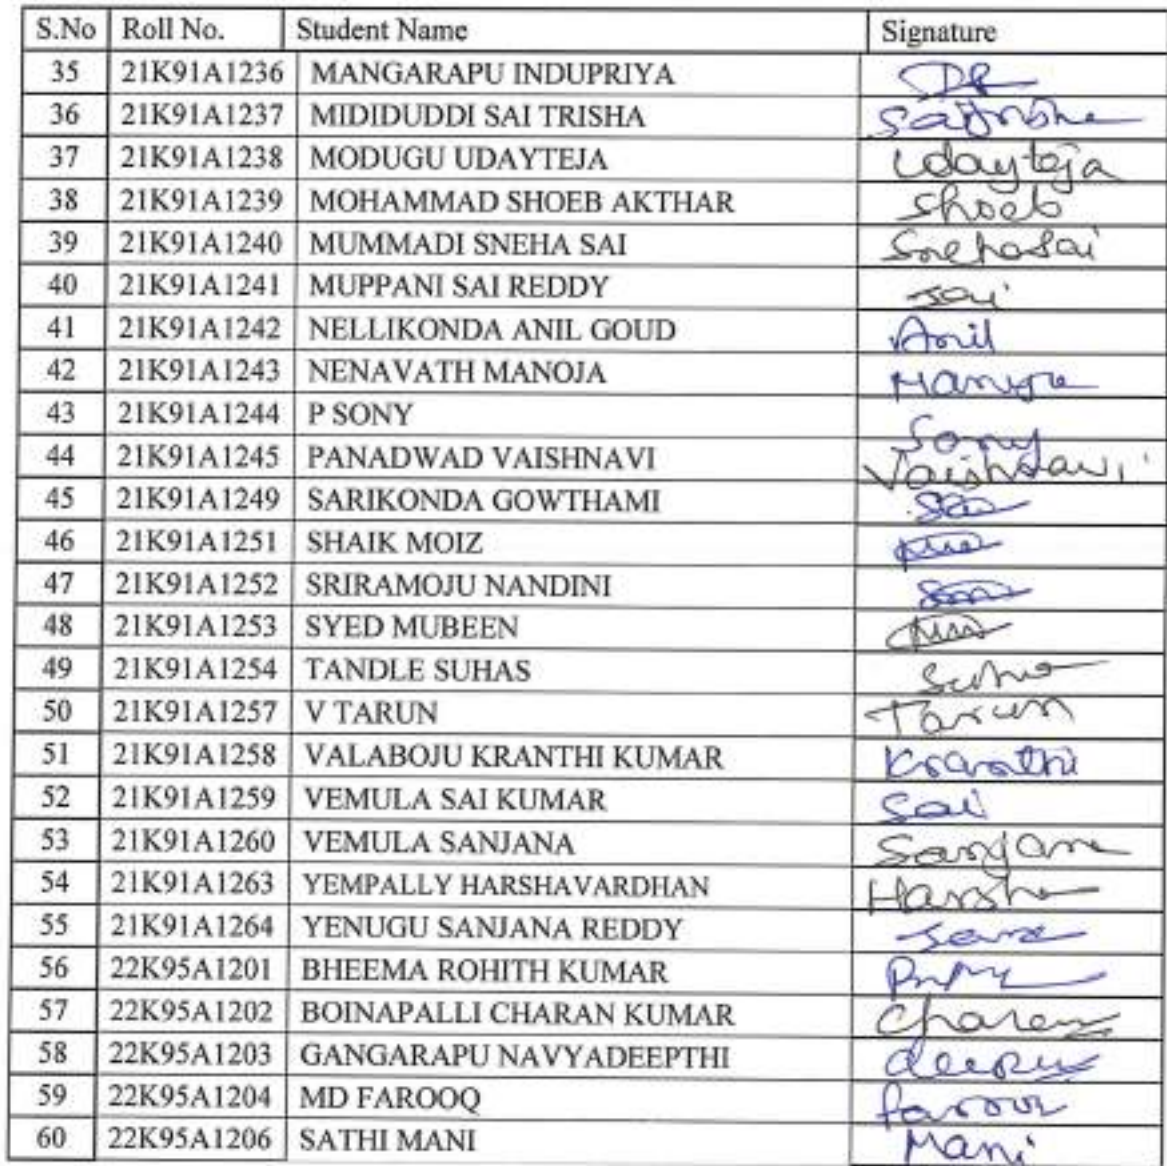 S.No Roll No. Student Name Signature
35 21K91A1236 MANGARAPU INDUPRIYA
36 21K91A1237 MIDIDUDDI SAI TRISHA Saitrisha
37 21K91A1238 MODUGU UDAYTEJA Udayteja
38 21K91A1239 MOHAMMAD SHOEB AKTHAR Shoeb
39 21K91A1240 MUMMADI SNEHA SAI Snehasai
40 21K91A1241 MUPPANI SAI REDDY Sai
41 21K91A1242 NELLIKONDA ANIL GOUD Anil
42 21K91A1243 NENAVATH MANOJA Manoja
43 21K91A1244 P SONY Sony
44 21K91A1245 PANADWAD VAISHNAVI Vaishnavi
45 21K91A1249 SARIKONDA GOWTHAMI
46 21K91A1251 SHAIK MOIZ
47 21K91A1252 SRIRAMOJU NANDINI
48 21K91A1253 SYED MUBEEN
49 21K91A1254 TANDLE SUHAS
50 21K91A1257 V TARUN Tarun
51 21K91A1258 VALABOJU KRANTHI KUMAR Kranthi
52 21K91A1259 VEMULA SAI KUMAR Sai
53 21K91A1260 VEMULA SANJANA Sanjana
54 21K91A1263 YEMPALLY HARSHAVARDHAN Harsha
55 21K91A1264 YENUGU SANJANA REDDY
56 22K95A1201 BHEEMA ROHITH KUMAR
57 22K95A1202 BOINAPALLI CHARAN KUMAR Charan
58 22K95A1203 GANGARAPU NAVYADEEPTHI deepu
59 22K95A1204 MD FAROOQ farooq
60 22K95A1206 SATHI MANI Mani